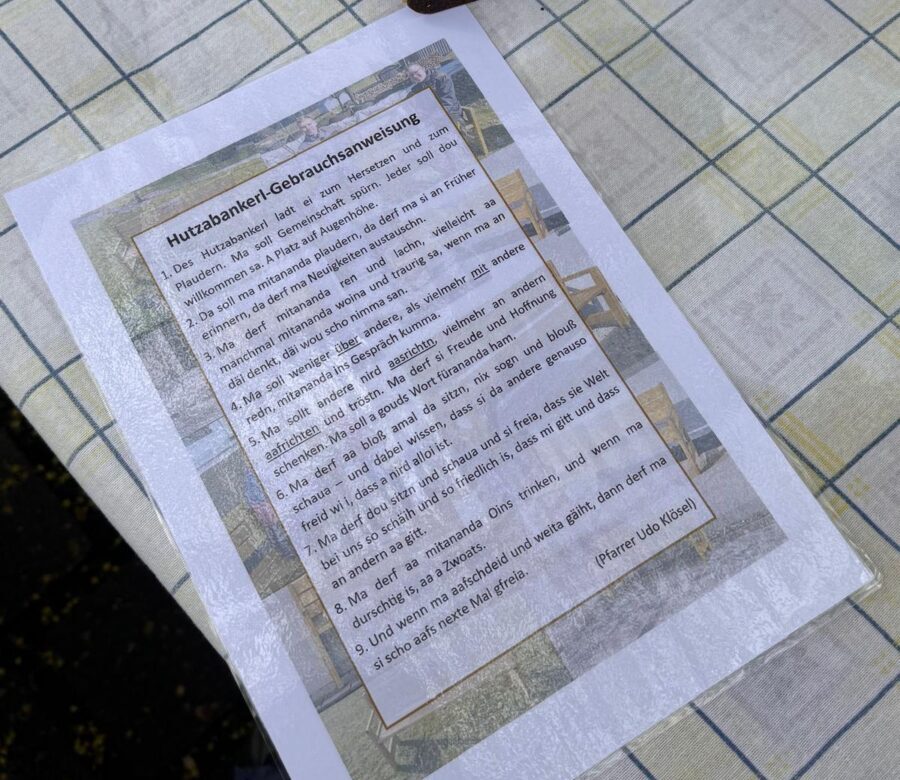 Hutzabankerl-Gebrauchsanweisung
1. Des Hutzabankerl ladt ei zum Hersetzen und zum
Plaudern. Ma soll Gemeinschaft spürn. Jeder soll dou
willkommen sa. A Platz auf Augenhöhe.
2. Da soll ma mitananda plaudern, da derf ma si an Früher
erinnern, da derf ma Neuigkeiten austauschn.
3. Ma derf mitananda ren und lachn, vielleicht aa
manchmal mitananda woina und traurig sa, wenn ma an
däi denkt, däi wou scho nimma san.
4. Ma soll weniger über andere, als vielmehr mit andere
redn, mitananda ins Gespräch kumma.
5. Ma sollt andere nird aasrichtn, vielmehr an andern
aafrichten und tröstn. Ma derf si Freude und Hoffnung
schenken. Ma soll a gouds Wort fürananda ham.
6. Ma derf aa bloß amal da sitzn, nix sogn und blouß
schaua – und dabei wissen, dass si da andere genauso
freid wi i, dass a nird alloi ist.
7. Ma derf dou sitzn und schaua und si freia, dass sie Welt
bei uns so schäih und so friedlich is, dass mi gitt und dass
an andern aa gitt.
8. Ma derf aa mitananda Oins trinken, und wenn ma
durschtig is, aa a Zwoats.
9. Und wenn ma aafschdeid und weita gäiht, dann derf ma
si scho aafs nexte Mal gfreia.
(Pfarrer Udo Klösel)